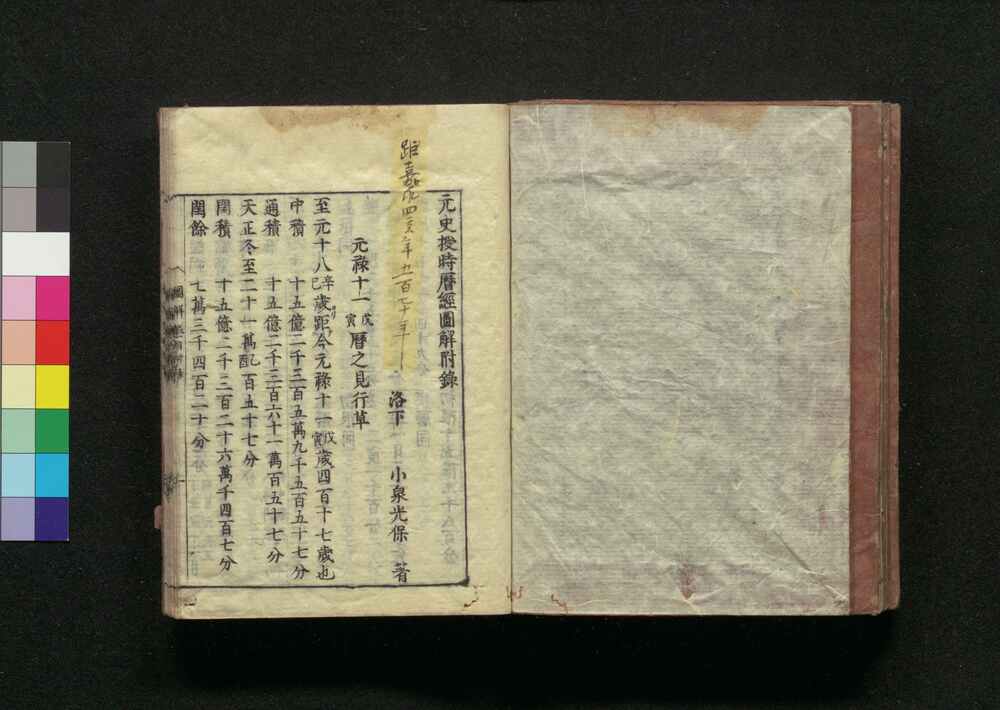 元史授時曆經圖解附錄
洛下　小泉光保　著
距嘉永四亥年五百七十年
元祿十一戊寅曆之見行草
至元十八辛巳歲距今元祿十一戊寅歲四百十七歲也
中積　十五億二千三百五萬九千五百五十七分
通積　十五億二千三百六十一萬百五十七分
天正冬至二十一萬配百五十七分
閏積　十五億二千三百二十六萬千四百七分
閏餘　七萬三千四百二十分